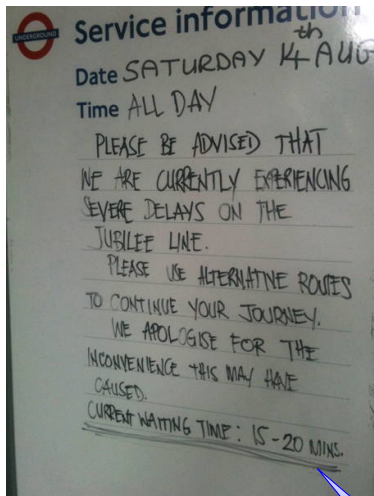 UNDERGROUND
Service information
Date SATURDAY 14th AUG
Time ALL DAY
PLEASE BE ADVISED THAT
WE ARE CURRENTLY EXPERIENCING
SEVERE DELAYS ON THE
JUBILEE LINE.
PLEASE USE ALTERNATIVE ROUTES
TO CONTINUE YOUR JOURNEY.
WE APOLOGISE FOR THE
INCONVENIENCE THIS MAY HAVE
CAUSED.
CURRENT WAITING TIME: 15-20 MINS.